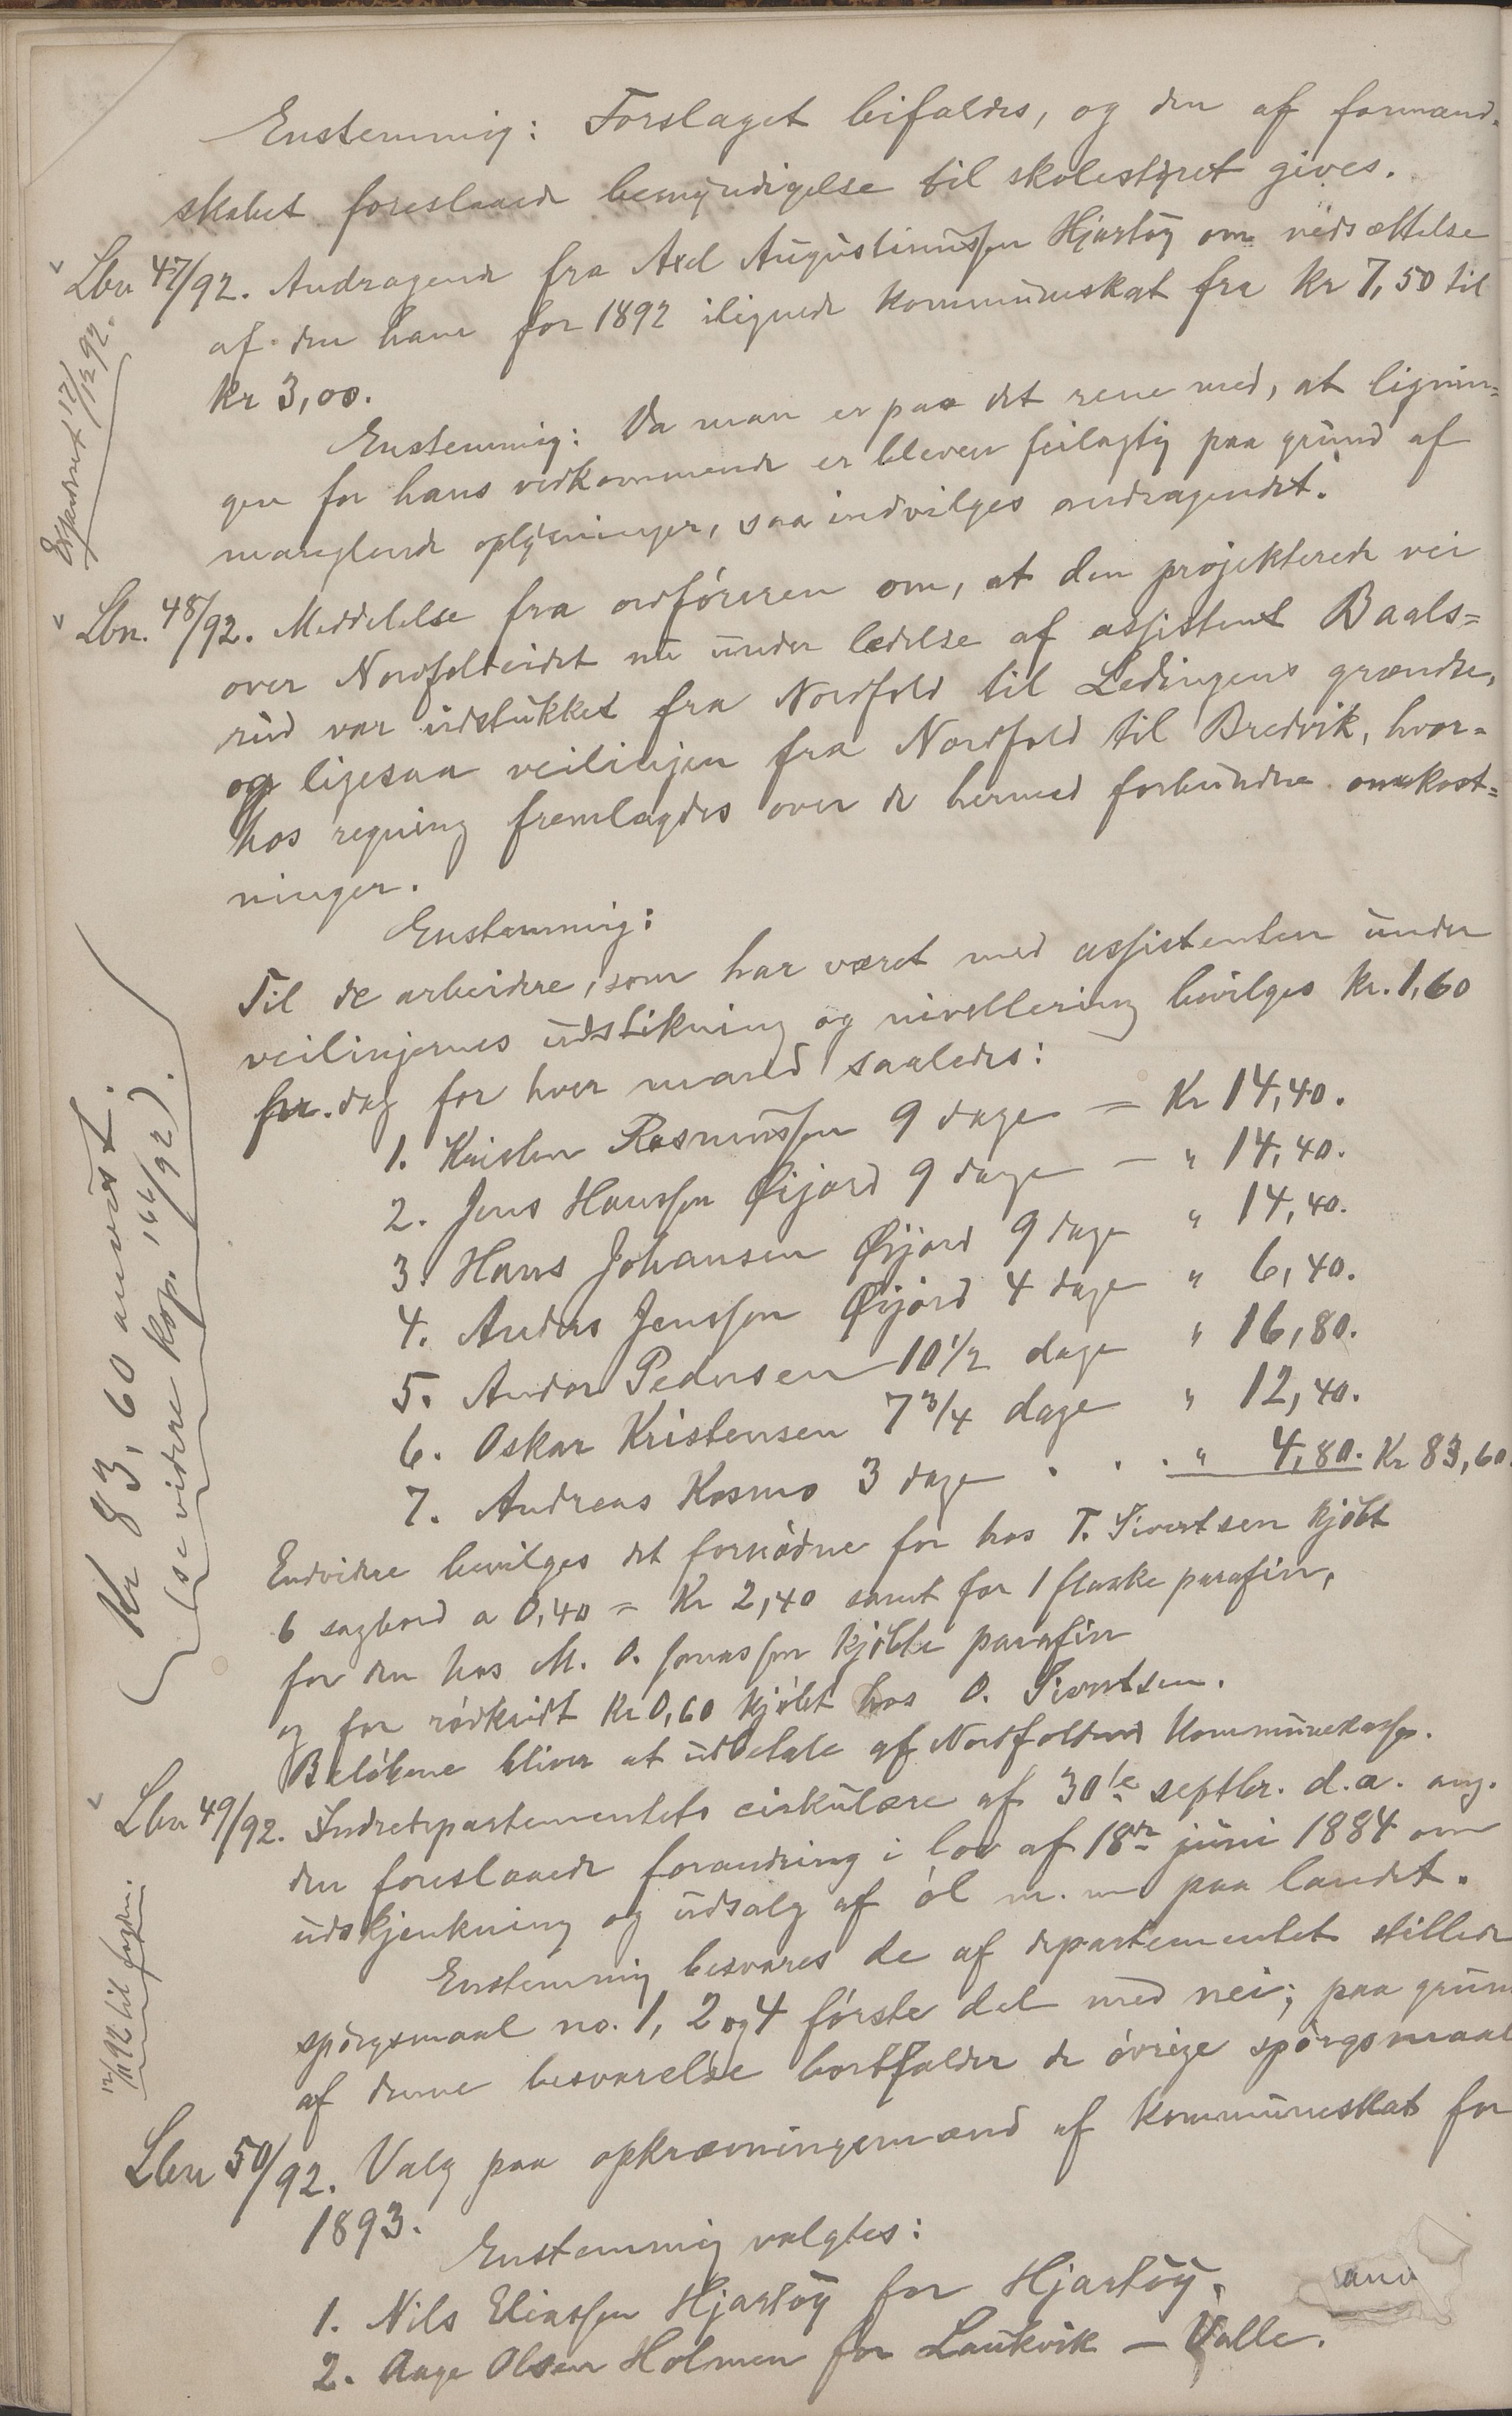 Enstemmig: Forslaget bifaldes, og den af formand-
skabet foreslaaede bemyndigelse til skolestyret gives.
Lbn 47/92. Andragende fra Axel Augustinussen Hjartøy om nedsættelse
af den ham for 1892 ilignede kommuneskat fra kr 7,50 til
kr 3,00.
Enstemmig: Da man er paa det rene med, at lignin-
gen for hans vedkommende er bleven feilagtig paa grund af
manglende oplysninger, saa indvilges andragendet.
Expederet 17/12 92.
Lbn. 48/92. Meddelelse fra ordføreren om, at den projekterede vei
over Nordfoldeidet nu under ledelse af assistent Baals=
rud var udstukket fra Nordfold til Ledingens grændse,
og ligesaa veilinjen fra Nordfold til Bredvik, hvor=
hos regning fremlagdes over de hermed forbundne omkost=
ninger.
Enstemmig:
Til de arbeidere, som har været med assistenten under
veilinjernes udstikning og nivellering bevilges kr. 1,60
pr. dag for hver mand saaledes:
1. Kristen Rasmussen 9 dage = Kr 14,40.
2. Jens Hanssen Øijord 9 dage — " 14,40.
3. Hans Johansen Øijord 9 dage " 14,40.
4. Anders Jenssen Øijord 4 dage " 6,40.
5. Andor Pedersen 10 1/2 dage " 16,80.
6. Oskar Kristensen 7 3/4 dage " 12,40.
7. Andreas Kosmo 3 dage . . . " 4,80. Kr 83,60.
Kr 83,60 anvist.
(se videre kop. 166/92).
Endvidere bevilges det fornødne for hos T. Sivertsen kjøbt
6 sagbord a 0,40 = Kr 2,40 samt for 1 flaske parafin,
for den hos M. O. Jonassen kjøbte parafin
og for rødkridt Kr 0,60 kjøbt hos O. Sivertsen.
Beløbene bliver at udbetale af Nordfoldens Kommunekasse.
Lbn 49/92. Indredepartementets cirkulære af 30te septbr. d.a. ang.
den foreslaaede forandring i lov af 18de juni 1884 om
udskjenkning og udsalg af øl m. m paa landet.
Enstemmig besvares de af departementet stillede
spørgsmaal no. 1, 2 og 4 første del med nei; paa grun
af denne besvarelse bortfalder de øvrige spørgsmaal
12/11 92 til fogden.
Lbn 50/92. Valg paa opkrævningsmænd af kommuneskat for
1893.
Enstemmig valgtes:
1. Nils Eliassen Hjartøy for Hjartøy.
2. Aage Olsen Holmen for Laukvik — Valle.